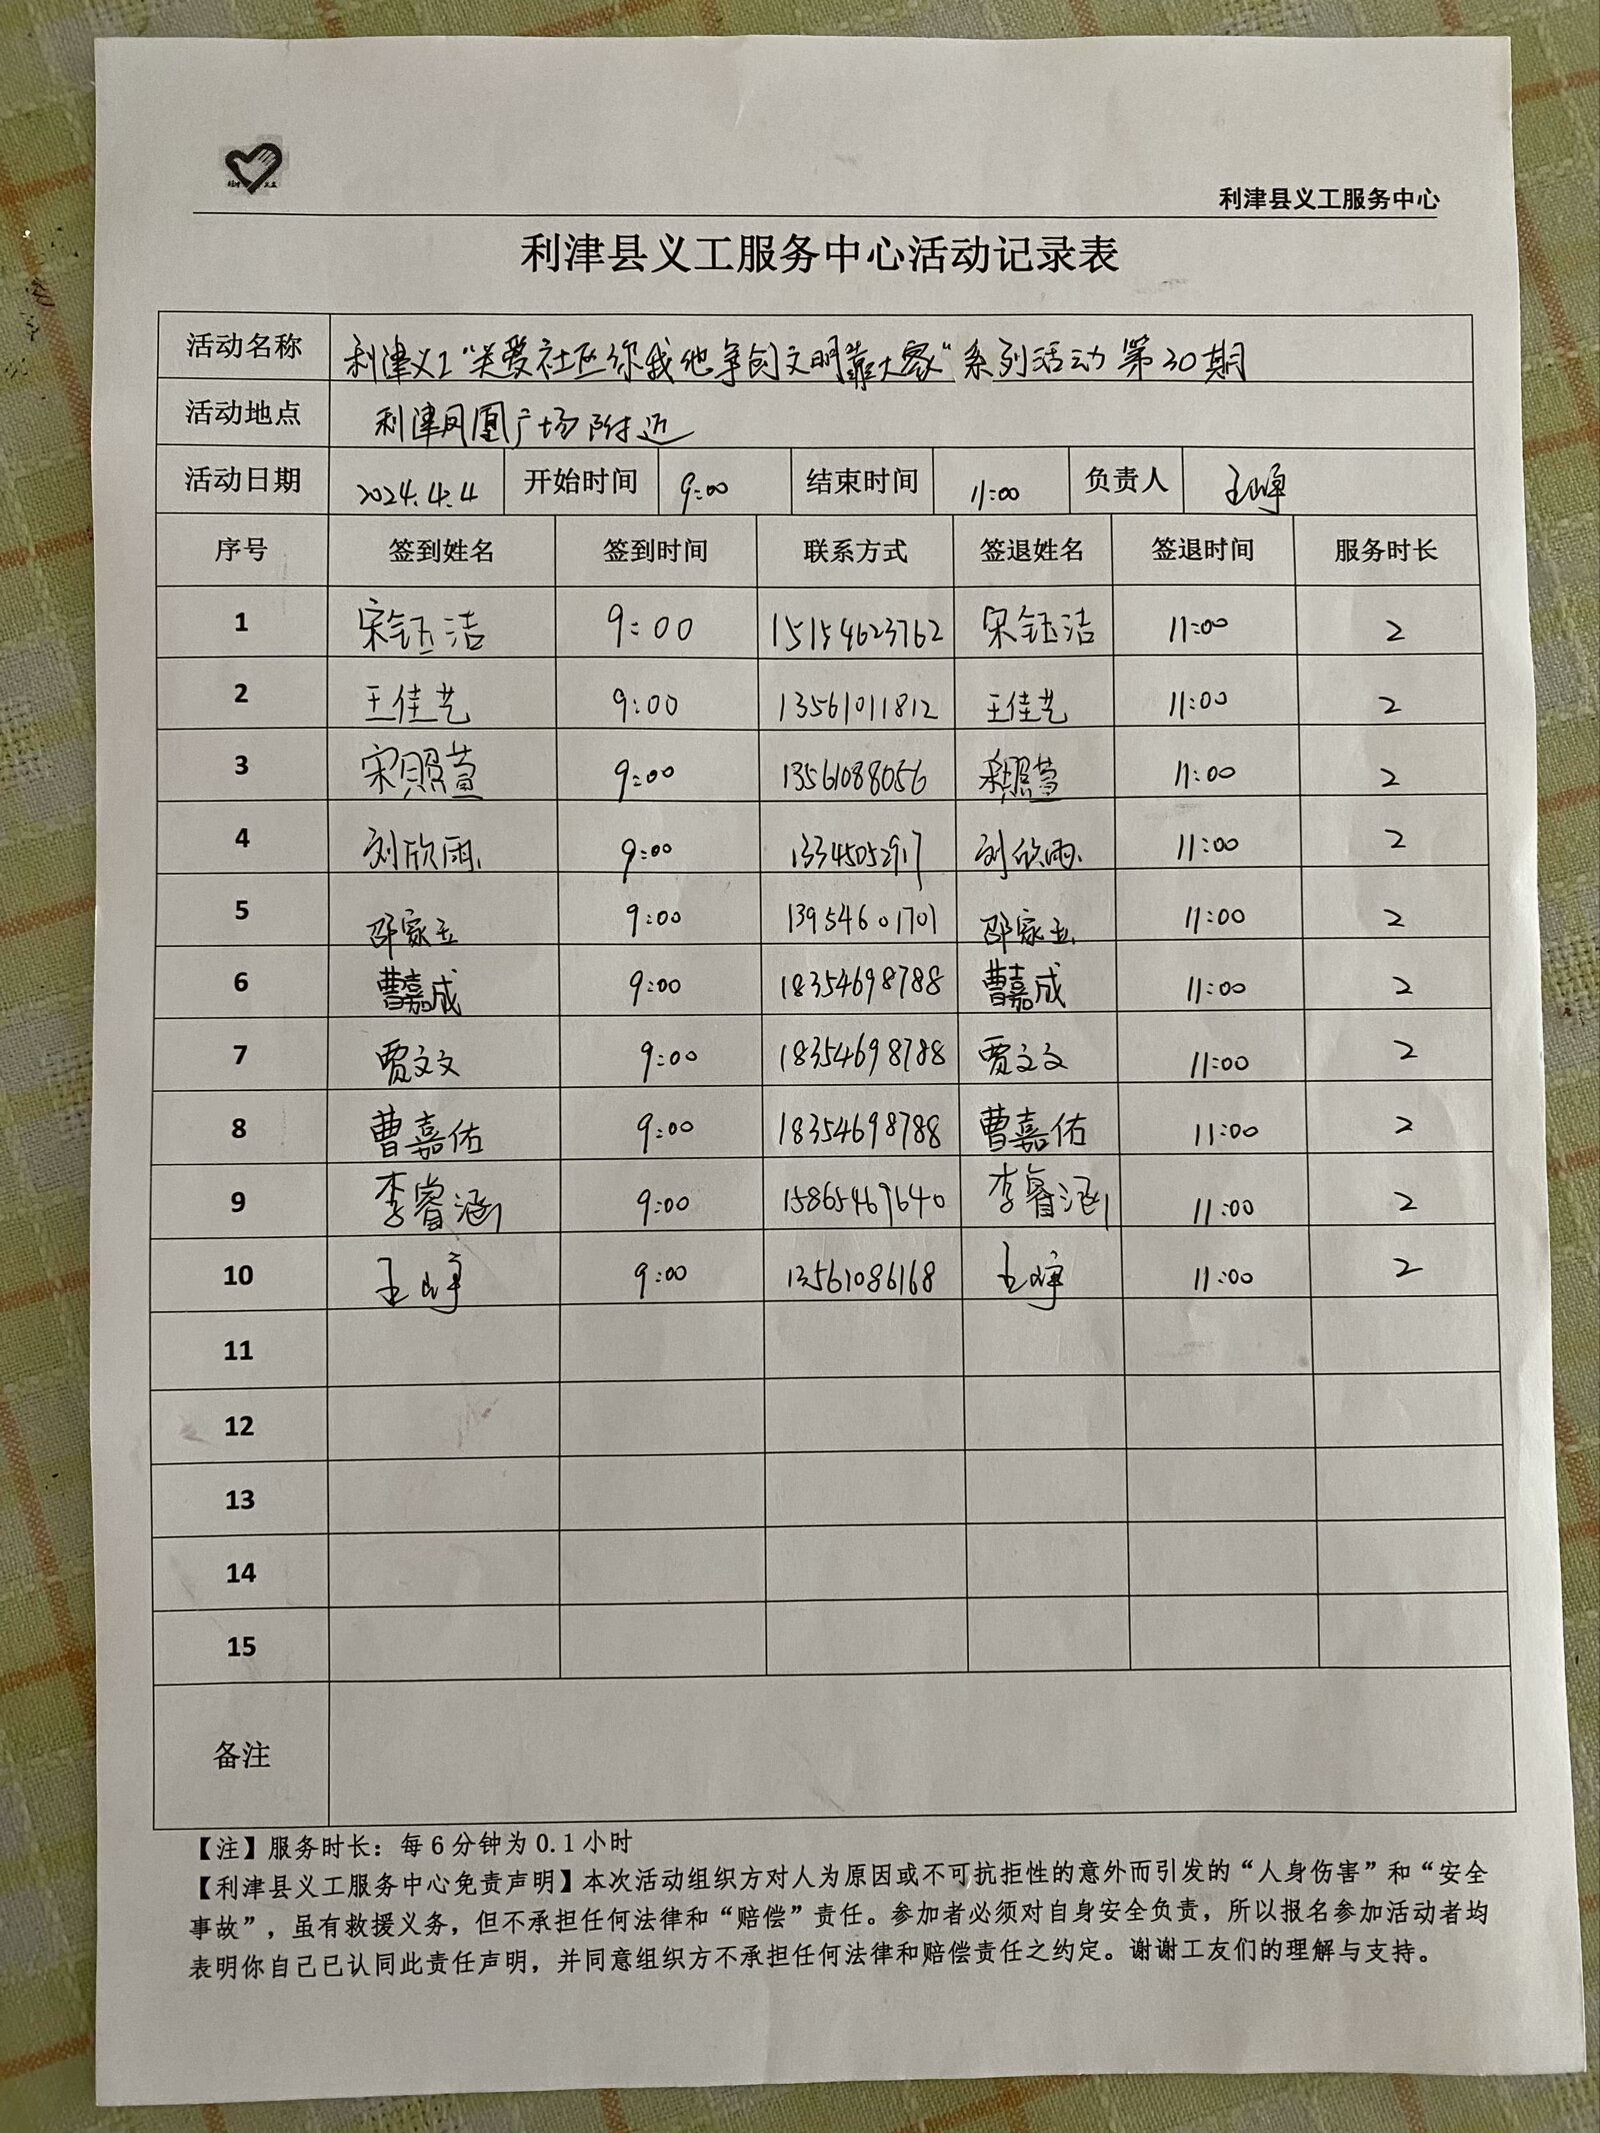 利津县义工服务中心
利津县义工服务中心活动记录表
活动名称 利津义工“关爱社区你我他争创文明靠大家”系列活动 第30期
活动地点 利津凤凰广场附近
活动日期 2024.4.4 开始时间 9:00 结束时间 11:00 负责人 王峥
序号 签到姓名 签到时间 联系方式 签退姓名 签退时间 服务时长
1 宋钰洁 9:00 15154623762 宋钰洁 11:00 2
2 王佳艺 9:00 13561011812 王佳艺 11:00 2
3 宋照萱 9:00 13561088056 宋照萱 11:00 2
4 刘欣雨 9:00 13345052917 刘欣雨 11:00 2
5 邵家玉 9:00 13954601701 邵家玉 11:00 2
6 曹嘉成 9:00 18354698788 曹嘉成 11:00 2
7 贾文文 9:00 18354698788 贾文文 11:00 2
8 曹嘉佑 9:00 18354698788 曹嘉佑 11:00 2
9 李睿涵 9:00 15865469640 李睿涵 11:00 2
10 王峥 9:00 13561086168 王峥 11:00 2
11
12
13
14
15
备注
【注】服务时长：每6分钟为0.1小时
【利津县义工服务中心免责声明】本次活动组织方对人为原因或不可抗拒性的意外而引发的“人身伤害”和“安全
事故”，虽有救援义务，但不承担任何法律和“赔偿”责任。参加者必须对自身安全负责，所以报名参加活动者均
表明你自己已认同此责任声明，并同意组织方不承担任何法律和赔偿责任之约定。谢谢工友们的理解与支持。